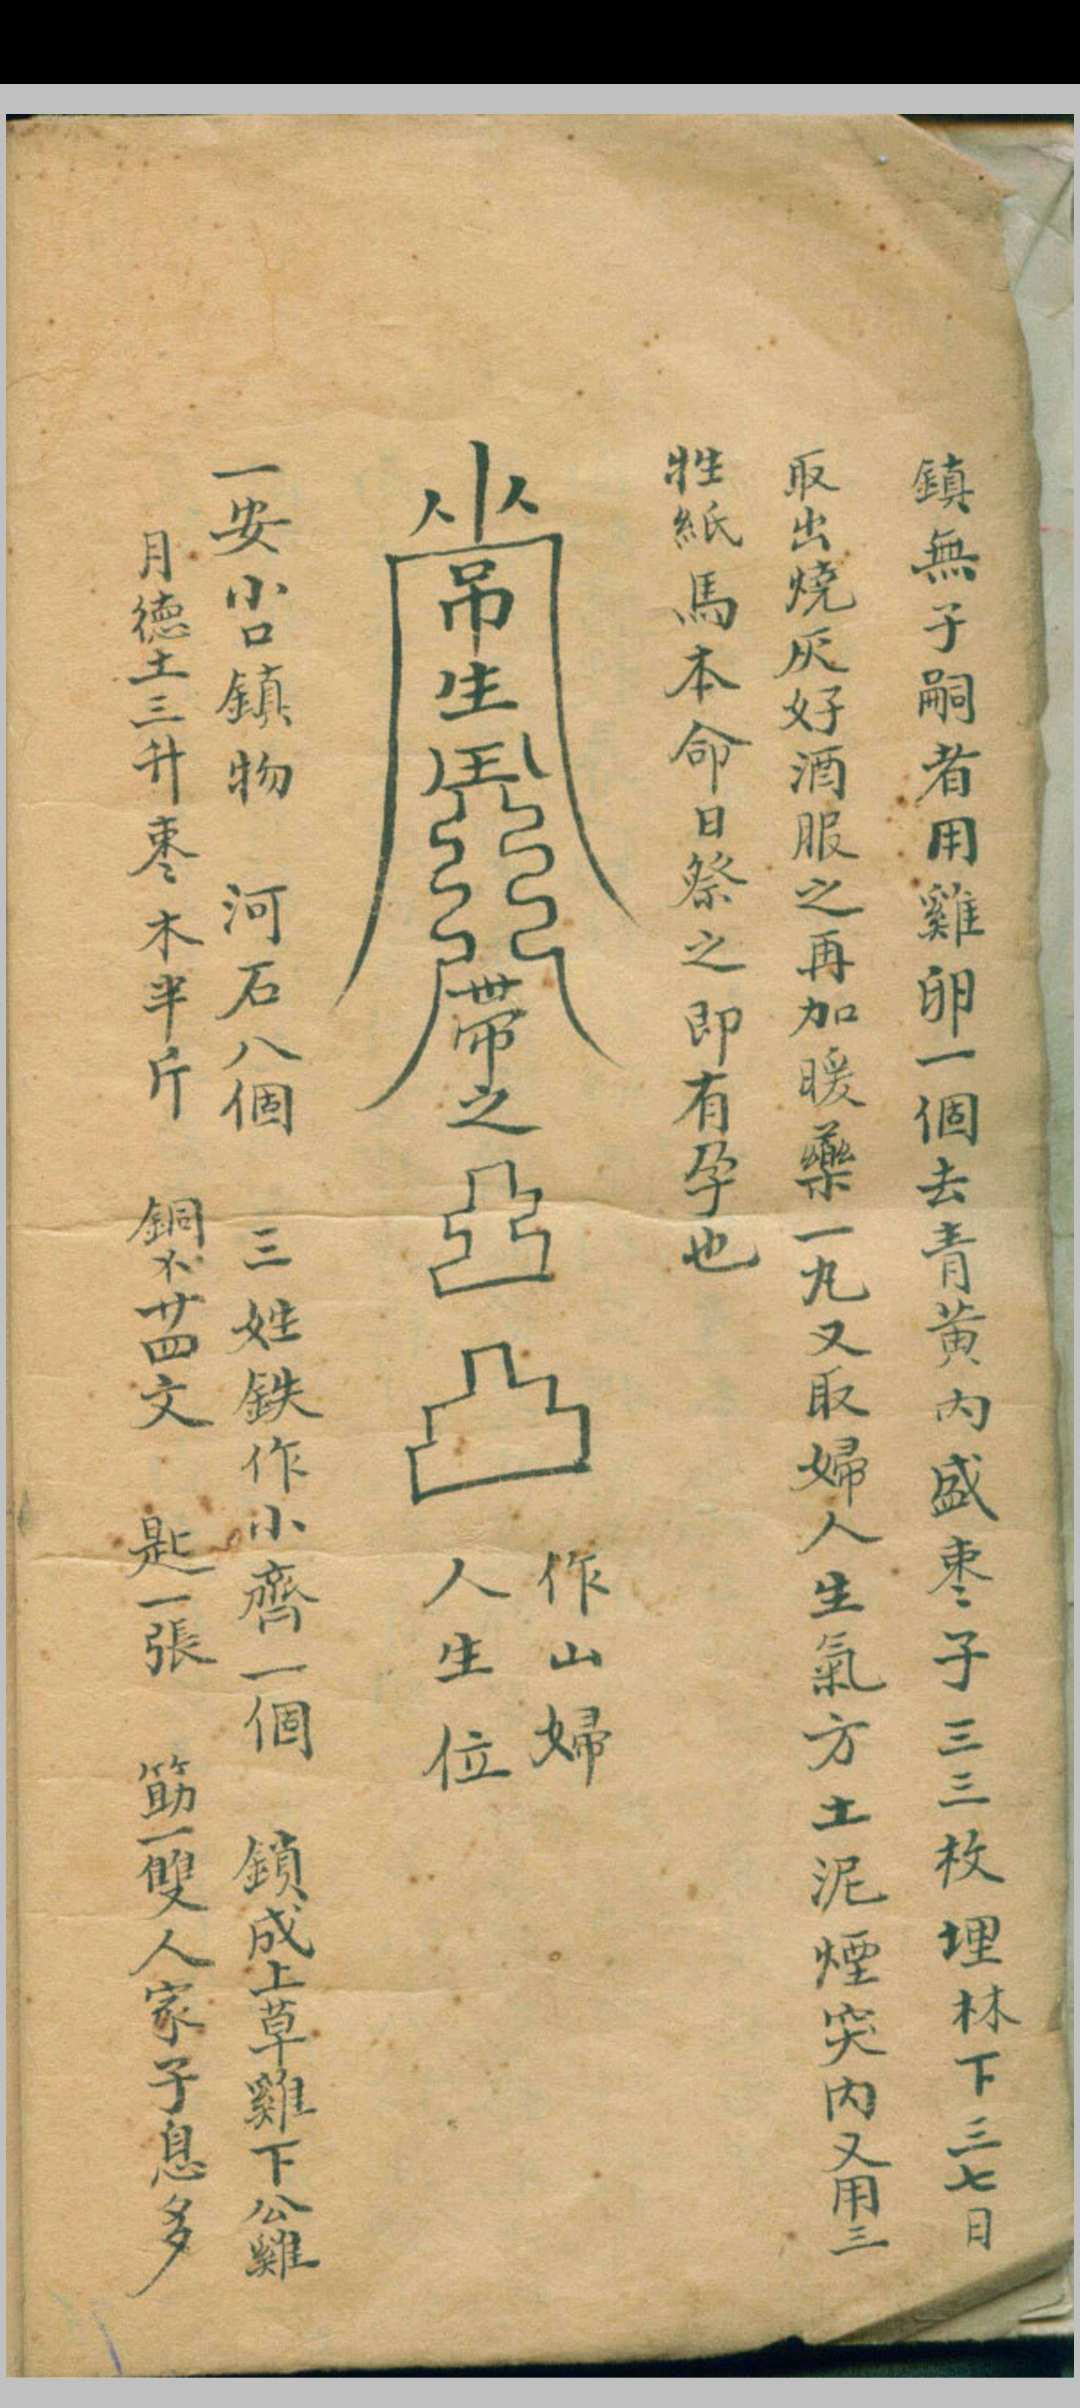 鎮無子嗣者用雞卵一個去青黃內盛棗子三三枚埋林下三七日
取出燒灰好酒服之再加暖藥一丸又取婦人生氣方土泥煙突內又用三
牲紙馬本命日祭之即有孕也
吊生
帶之
作山婦
人生位
一安小口鎮物 河石八個 三姓鉄作小齊一個 鎖成上草雞下公雞
月德土三升棗木半斤 銅不廿四文 匙一張 筯一雙人家子息多